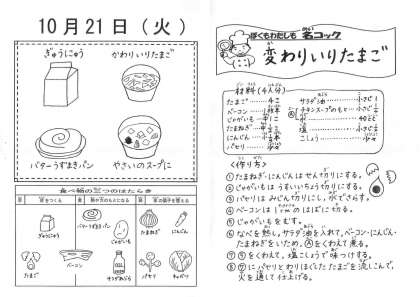 10月21日(火)
ぎゅうにゅう
かわりいりたまご
バターうずまきパン
やさいのスープに
食べ物の三つのはたらき
ぎゅうにゅう
バターうずまきパン
じゃがいも
たまねぎ
にんじん
たまご
ベーコン
サラダあぶら
パセリ
キャベツ
ぼくもわたしも 名コック
変わりいりたまご
材料(4人分)
たまご
ベーコン
じゃがいも
たまねぎ
にんじん
パセリ
サラダ油
チキンスープのもと
水
塩
こしょう
<作り方>
①たまねぎ・にんじんはせん切りにする。
②じゃがいもはうすいいちょう切りにする。
③パセリはみじん切りにし、水でさらす。
④ベーコンは1cmのはばに切る。
⑤じゃがいもをむす。
⑥なべを熱し、サラダ油を入れて、ベーコン・にんじん・
たまねぎをいため、Ⓐをくわえて煮る。
⑦⑤をくわえて、塩こしょうで味つけする。
⑧⑦にパセリとわりほぐしたたまごを流しこんで、
火を通して仕上げる。